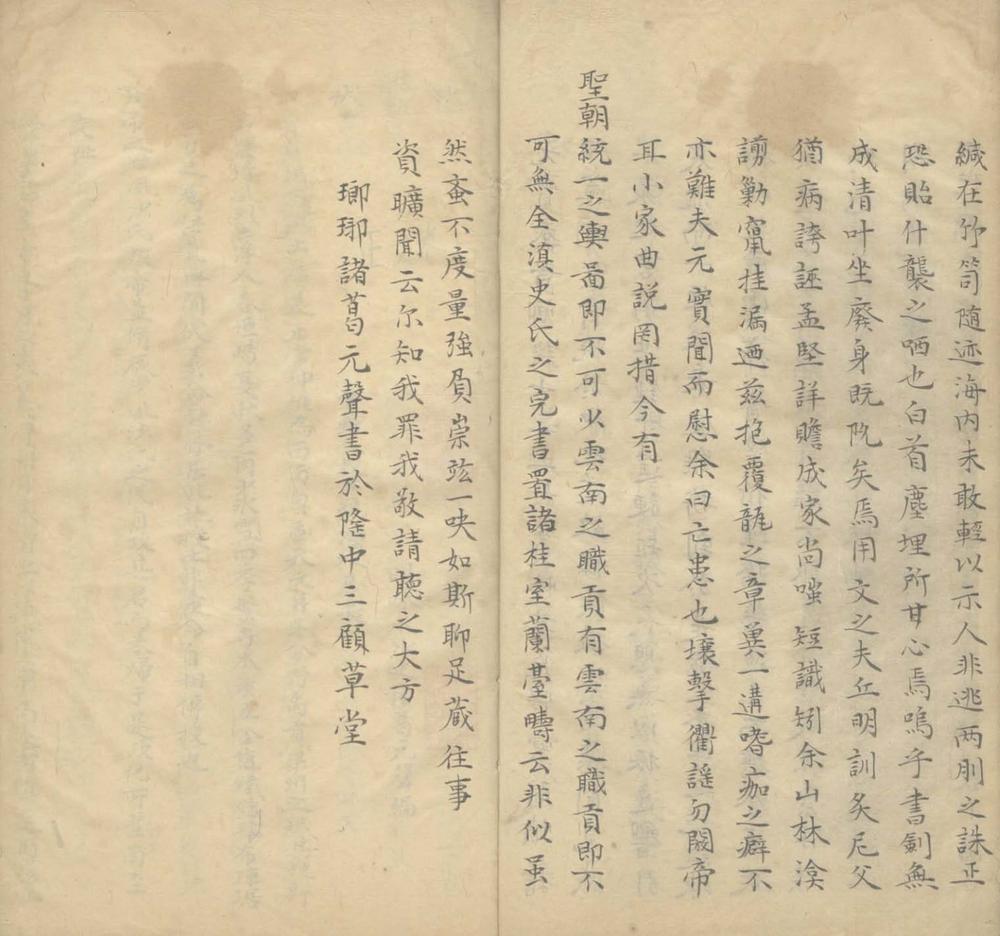 緘在竹笥随迹海内未敢輕以示人非逃两刖之誅正
恐貽什襲之哂也白首塵埋所甘心焉嗚乎書劍無
成清叶坐廢身既阬矣焉用文之夫丘明訓炙尼父
猶病誇誣孟堅詳贍成家尚嗤短識矧余山林
謭勦窾挂漏迺兹抱覆瓿之章兾一遘嗜痂之癖不
亦難夫元實聞而慰余曰亡患也壤擊衢謡勿閟帝
耳小家曲説罔措今有
聖朝統一之輿啚即不可以雲南之職貢有雲南之職貢即不
可無全滇史氏之完書置諸桂室蘭臺疇云非似虽
然蚉不度量強負崇兹一吷如斯聊足蕆往事
資曠聞云尔知我罪我敬請聴之大方
瑯琊諸葛元聲書於隆中三顧草堂